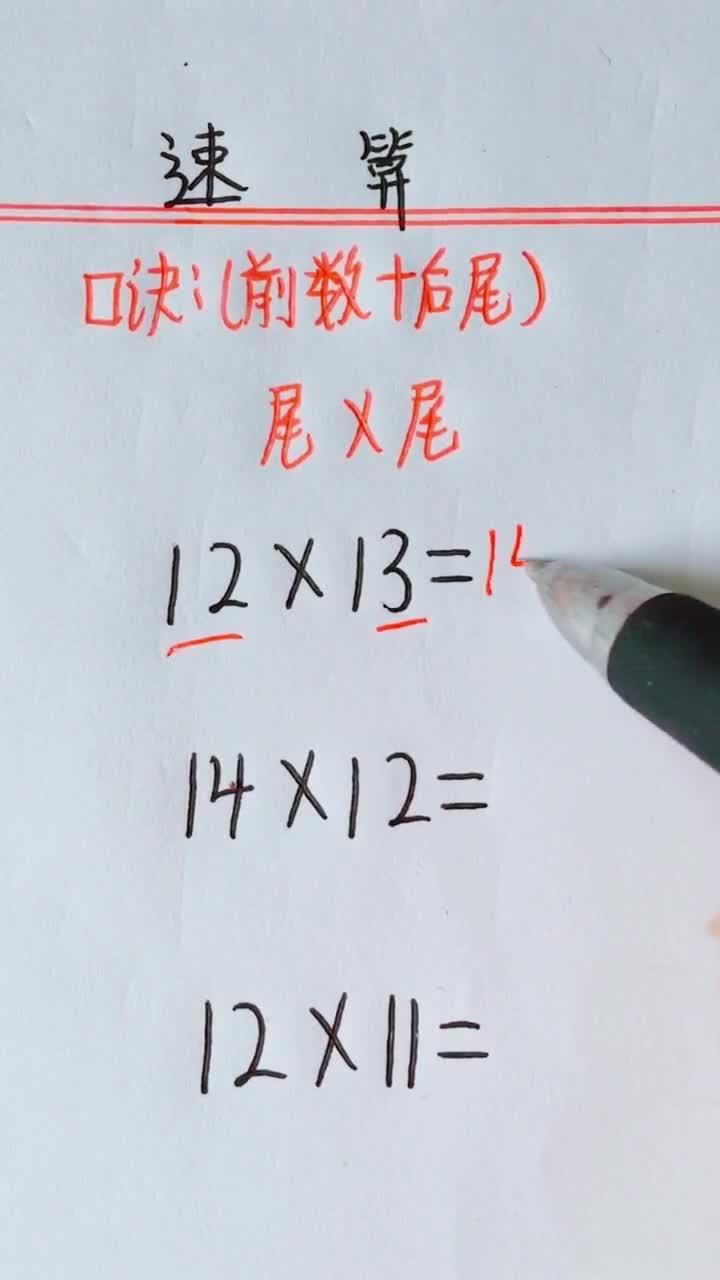 速 算
口诀:(前数+后尾)
尾×尾
12×13=1
14×12=
12×11=